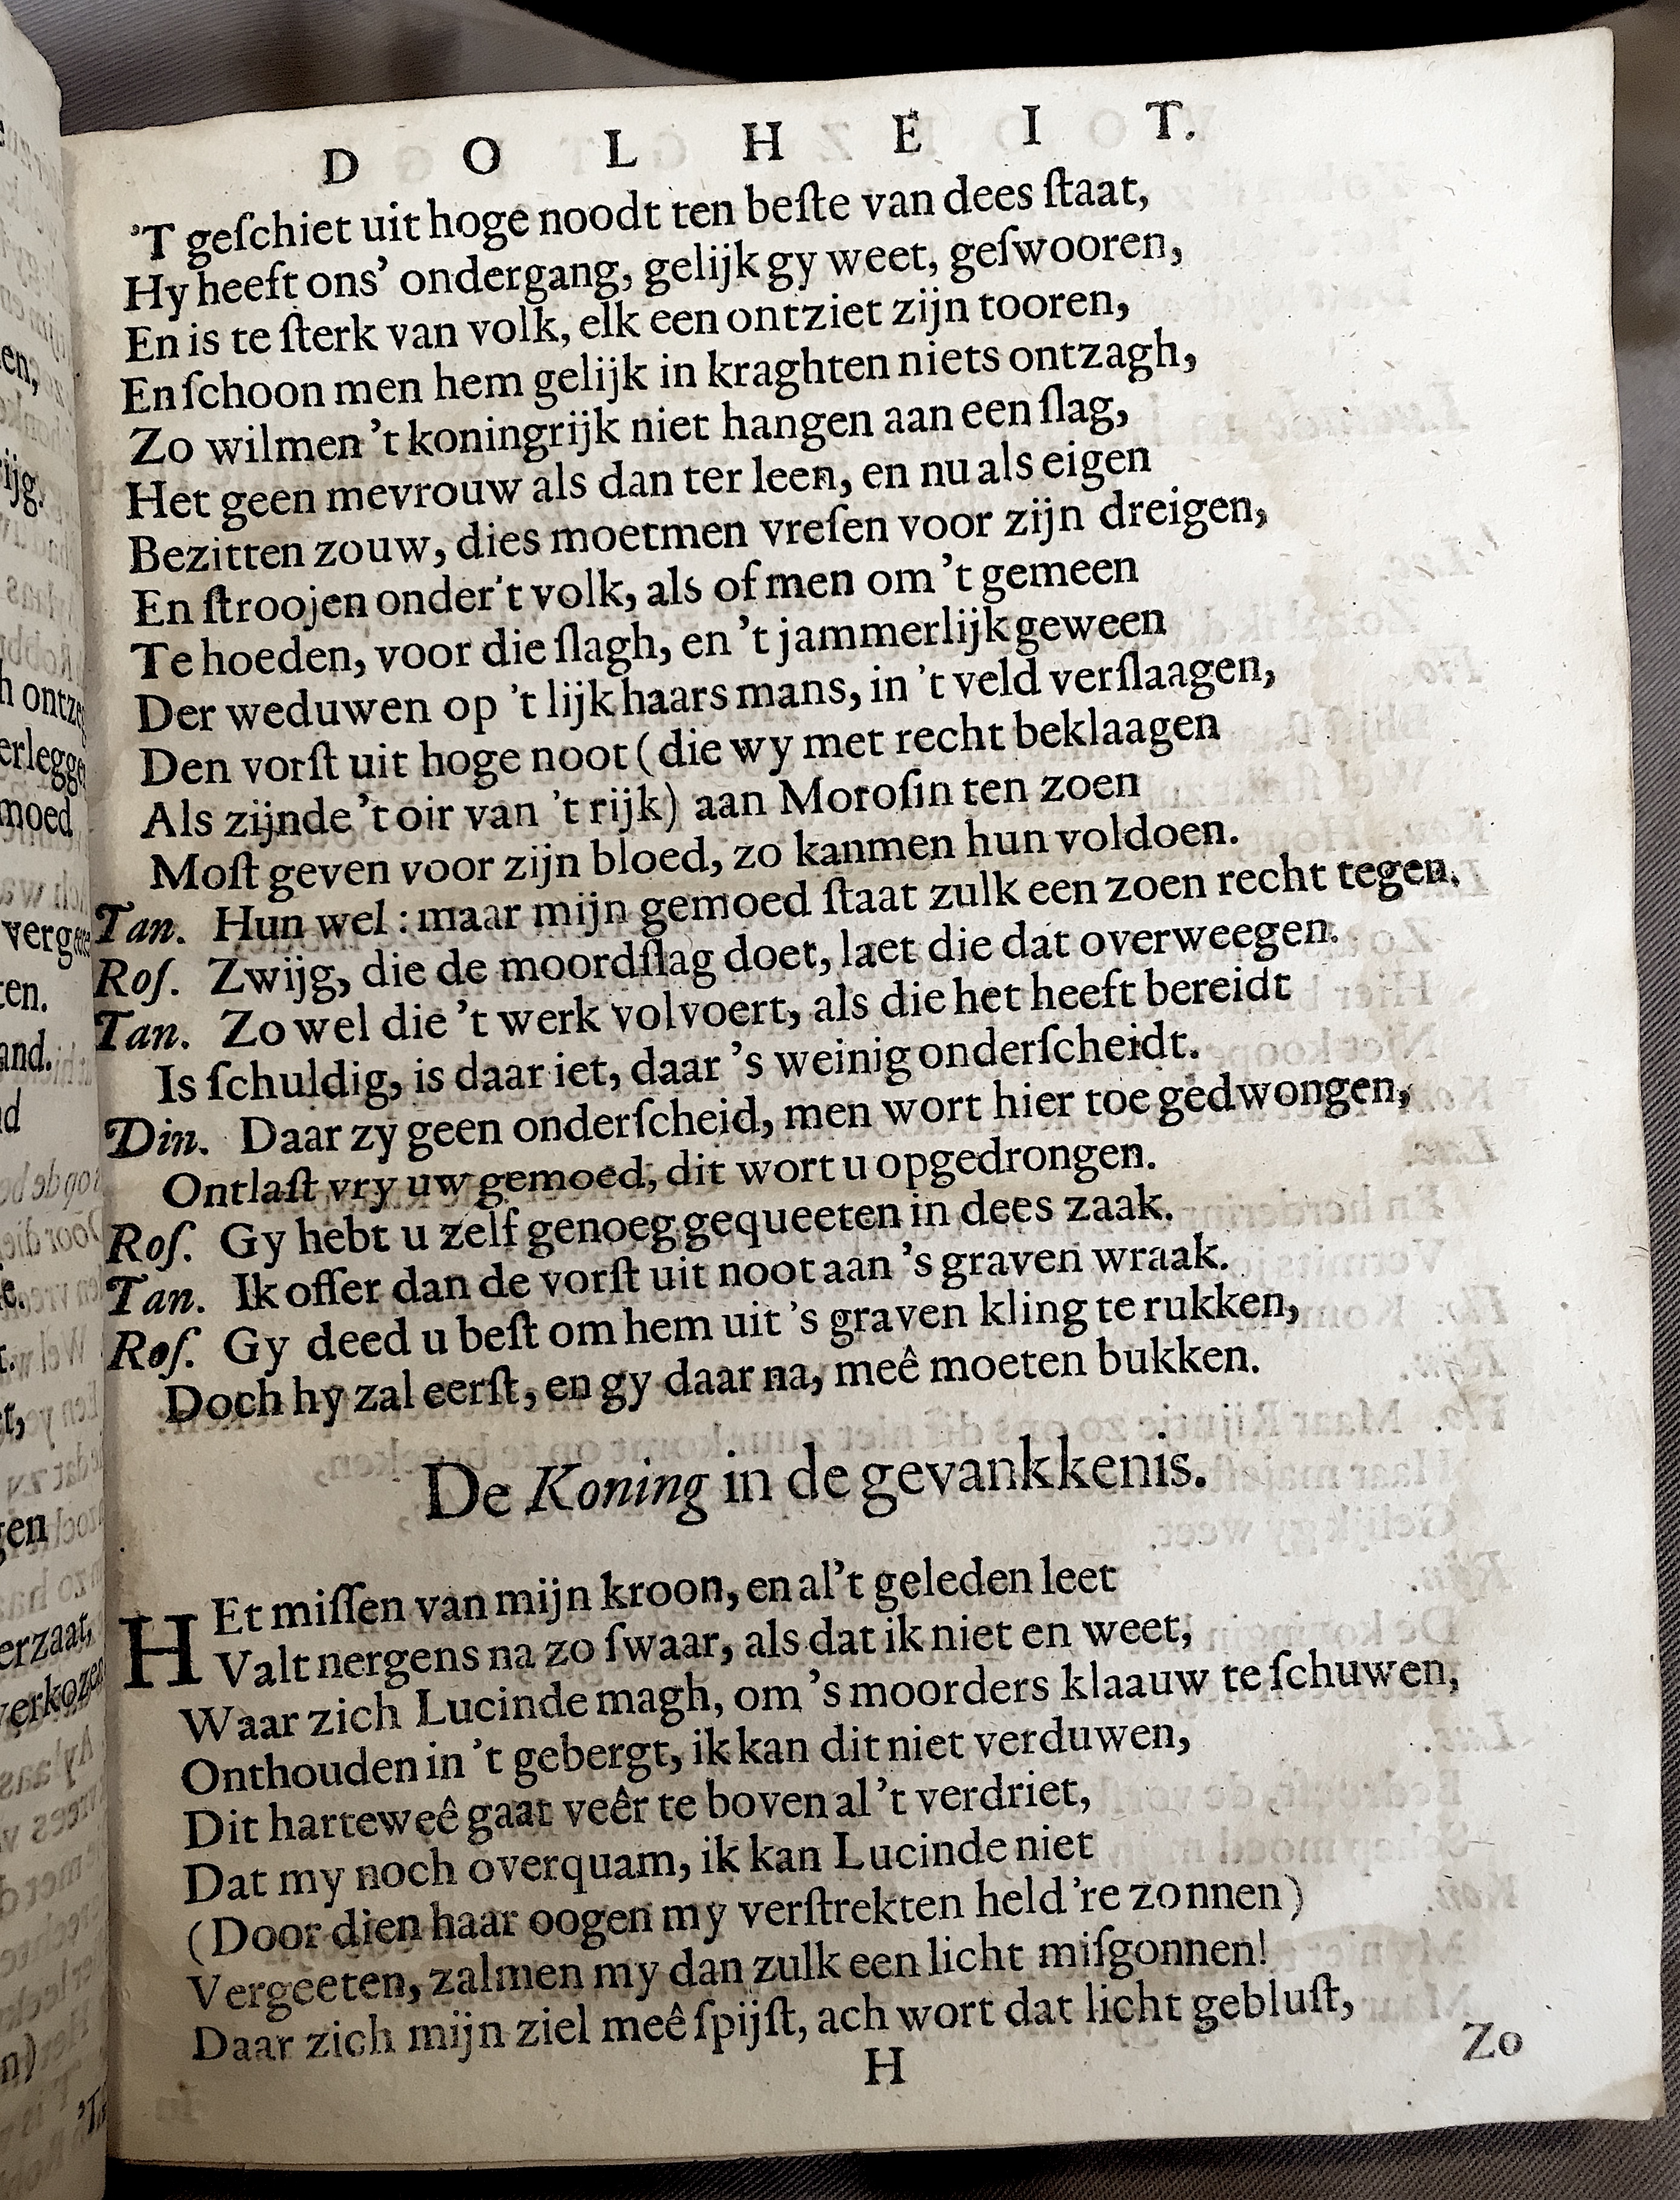 D O L H E I T.
'T geſchiet uit hoge noodt ten beſte van dees ſtaat,
Hy heeft ons' ondergang, gelijk gy weet, geſwooren,
En is te ſterk van volk, elk een ontziet zijn tooren,
En ſchoon men hem gelijk in kraghten niets ontzagh,
Zo wilmen 't koningrijk niet hangen aan een ſlag,
Het geen mevrouw als dan ter leen, en nu als eigen
Bezitten zouw, dies moetmen vreſen voor zijn dreigen,
En ſtroojen onder't volk, als of men om 't gemeen
Te hoeden, voor die ſlagh, en 't jammerlijk geween
Der weduwen op 't lijk haars mans, in 't veld verſlaagen,
Den vorſt uit hoge noot (die wy met recht beklaagen
Als zijnde 't oir van 't rijk) aan Moroſin ten zoen
Moſt geven voor zijn bloed, zo kanmen hun voldoen.
Tan. Hun wel: maar mijn gemoed ſtaat zulk een zoen recht tegen.
Roſ. Zwijg, die de moordſlag doet, laet die dat overweegen.
Tan. Zo wel die 't werk volvoert, als die het heeft bereidt
Is ſchuldig, is daar iet, daar 's weinig onderſcheidt.
Din. Daar zy geen onderſcheid, men wort hier toe gedwongen,
Ontlaſt vry uw gemoed, dit wort u opgedrongen.
Roſ. Gy hebt u zelf genoeg gequeeten in dees zaak.
Tan. Ik offer dan de vorſt uit noot aan 's graven wraak.
Roſ. Gy deed u beſt om hem uit 's graven kling te rukken,
Doch hy zal eerſt, en gy daar na, meê moeten bukken.
De Koning in de gevankkenis.
HEt miſſen van mijn kroon, en al't geleden leet
Valt nergens na zo ſwaar, als dat ik niet en weet,
Waar zich Lucinde magh, om 's moorders klaauw te ſchuwen,
Onthouden in 't gebergt, ik kan dit niet verduwen,
Dit harteweê gaat veêr te boven al 't verdriet,
Dat my noch overquam, ik kan Lucinde niet
(Door dien haar oogen my verſtrekten held 're zonnen)
Vergeeten, zalmen my dan zulk een licht miſgonnen!
Daar zich mijn ziel meê ſpijſt, ach wort dat licht gebluſt,
H
Zo